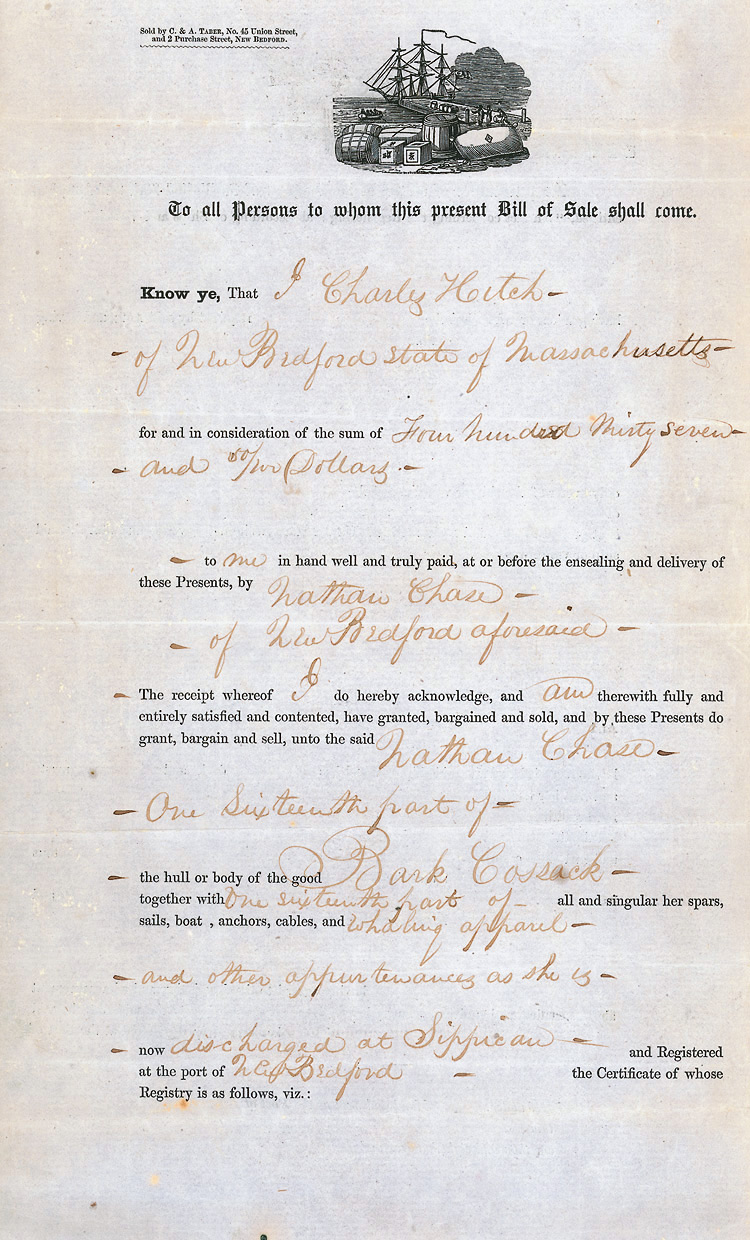 Sold by C. & A. TABER, No. 45 Union Street,
and 2 Purchase Street, NEW BEDFORD.
To all Persons to whom this present Bill of Sale shall come.
Know ye, That I Charles Hitch -
- of New Bedford state of Massachusetts -
for and in consideration of the sum of Four hundred thirty seven -
- and 50/100 Dollars . -
- to me in hand well and truly paid, at or before the ensealing and delivery of
these Presents, by Nathan Chase -
- of New Bedford aforesaid -
- The receipt whereof I do hereby acknowledge, and am therewith fully and
entirely satisfied and contented, have granted, bargained and sold, and by these Presents do
grant, bargain and sell, unto the said Nathan Chase -
- One Sixteenth part of -
- the hull or body of the good Bark Cossack -
together with One sixteenth part of - all and singular her spars,
sails, boat , anchors, cables, and whaling apparel -
- and other appurtenances as she is -
- now discharged at Sippican - and Registered
at the port of New Bedford - the Certificate of whose
Registry is as follows, viz.: